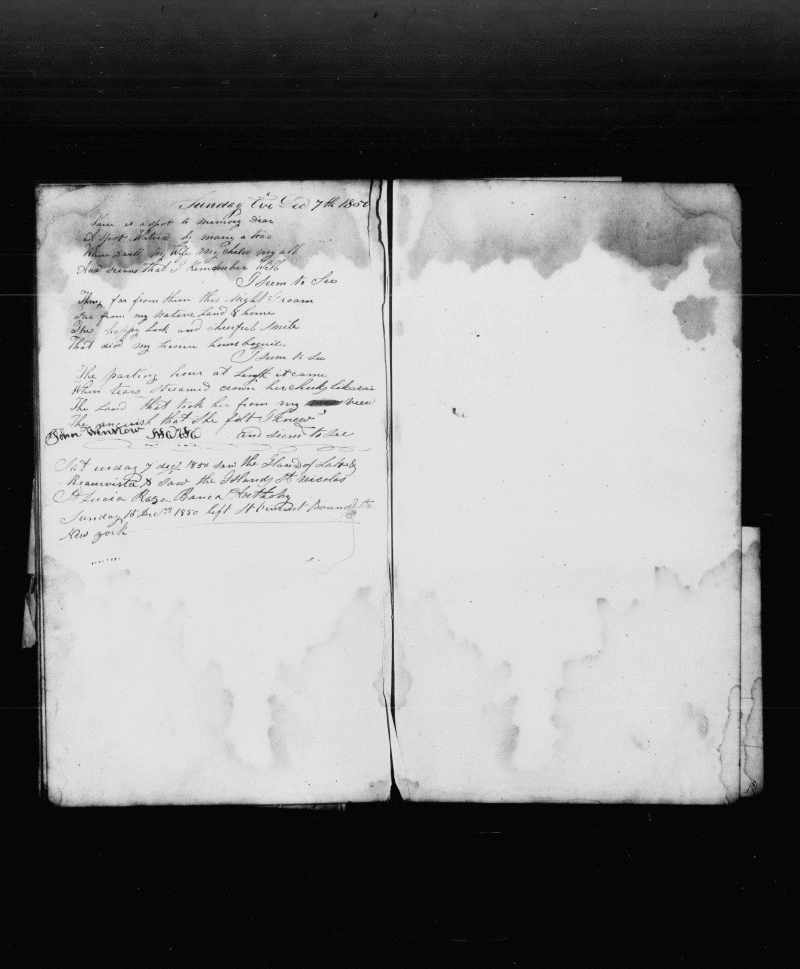 Sunday Eve Dec 7th 1850
There is a spot to memory dear
A spot Waterd by many a tear
Where dwells my Wife my Childer my all
And dreams that I Remember Well
I seem to See
Thoug far from them this Night I roam
Far from my Native Land & home
The happy Look and cheerful Smile
That did my liesure hours beguile
I seem to see
The parting hour at Length it came
When tears Streamed down her cheeks like rain
The Land that took her from my view
The anguish that She felt I knew
John Winslow and seem to see
Saturday 7 Decr 1850 saw the Iland of
Beauvista & Saw the Islands St Nicolas
St Lucia Raza Banca
Sunday 15 Dec 1850 left St Vincent Bound to
New york